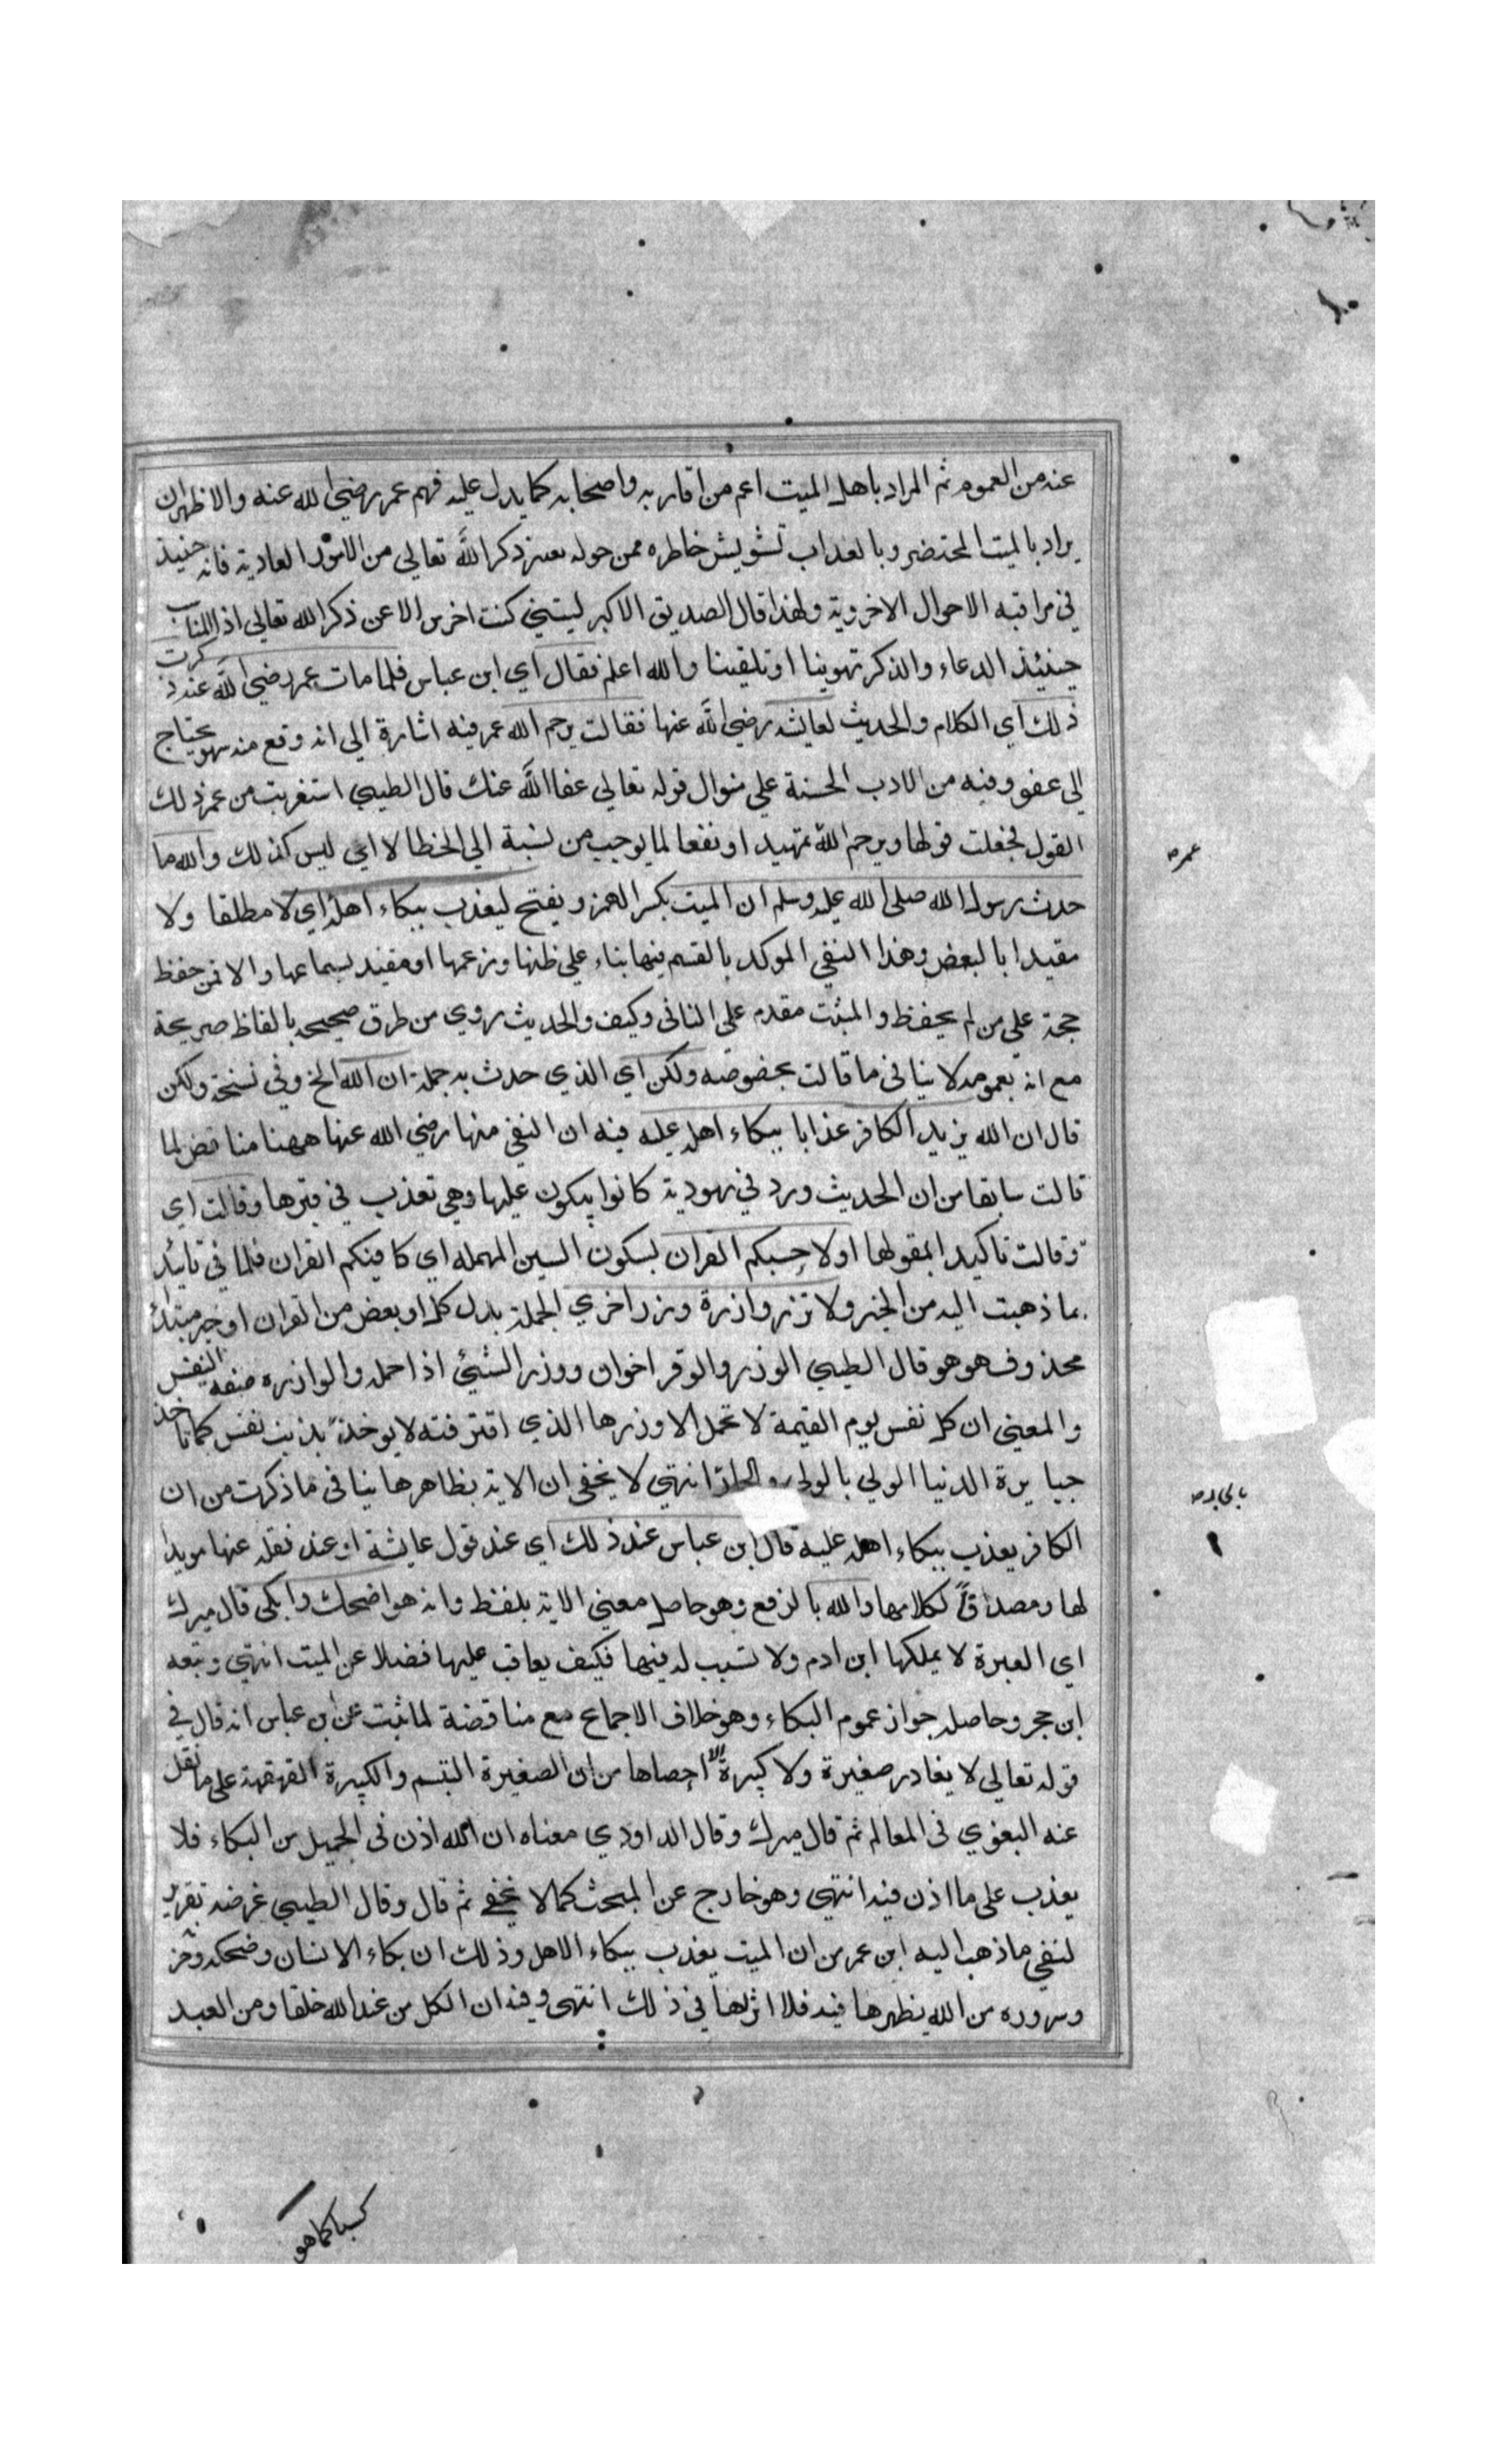 عنه من العموم ثم المراد باهل الميت اعم من اقاربه واصحابه كما يدل عليه فهم عمر رضي الله عنه والاظهر ان
يراد بالميت المحتضر وبالعذاب تشويش خاطره ممن حوله بغير ذكر الله تعالي من الامور العادية فانه حينيذ
في مراقبة الاحوال الاخروية ولهذا قال الصديق الاكبر ليتني كنت اخرس الا عن ذكر الله تعالي اذ المناسب
حينئذ الدعاء والذكر تهوينا او تلقينا والله اعلم فقال اي ابن عباس فلما مات عمر رضي الله عنه ذكرت
ذلك اي الكلام والحديث لعايشه رضي الله عنها فقالت يرحم الله عمر فيه اشارة الي انه وقع منه سهو يحتاج
الي عفو وفيه من الادب الحسنة علي منوال قوله تعالي عفا الله عنك قال الطيبي استغربت من عمر ذلك
القول فجعلت قولها ويرحم الله تمهيد او نفعا لما يوجب من نسبة الي الخطا لا اي ليس كذلك والله ما
حدث رسول الله صلي الله عليه وسلم ان الميت بكسر الهمز ويفتح ليعذب ببكاء اهله اي لا مطلقا ولا
مقيدا بالبعض وهذا النفي الموكد بالقسم فيها بناء علي ظنها وزعمها او مقيد بسماعها والا فمن حفظ
حجة علي من لم يحفظ والمثبت مقدم علي النافي وكيف والحديث روي من طرق صحيحه بالفاظ صريحة
مع انه بعمومه لا ينافي ما قالت بخصوصه ولكن اي الذي حدث به جملة ان الله الخ وفي نسخة ولكن
قال ان الله يزيد الكافر عذابا ببكاء اهله عليه فيه ان النفي منها رضي الله عنها ههنا مناقض لما
قالت سابقا من ان الحديث ورد في يهودية كانوا يبكون عليها وهي تعذب في قبرها وقالت اي
وقالت تاكيدا لمقولها اولا حسبكم القران بسكون السين المهمله اي كافيكم القران فلما في تائيد
ما ذهبت اليه من الخبر ولا تزر وازرة وزر اخري الجملة بدل كل او بعض من القران او خبر مبتدا
محذوف هو هو قال الطيبي الوزر والوقر اخوان ووزر الشيئ اذا حمله والوازره صفة النفس
والمعني ان كل نفس يوم القيمة لا تحمل الا وزرها الذي اقترفته لا يوخذ بذنب نفس كما تاخذ
جبابرة الدنيا الولي بالولي والجار انتهي لا يخفي ان الاية بظاهرها ينافي ما ذكرت من ان
الكافر يعذب ببكاء اهله عليه قال ابن عباس عند ذلك اي عند قول عايشة او عند نقله عنها مويدا
لها ومصداقا لكلامها والله بالرفع وهو حاصل معني الاية بلفظ وانه هو اضحك وابكي قال ميرك
اي العبرة لا يملكها ابن ادم ولا تسبب له فيها فكيف يعاقب عليها فضلا عن الميت انتهي وتبعه
ابن حجر وحاصله جواز عموم البكاء وهو خلاف الاجماع مع مناقضة لما ثبت عن ابن عباس انه قال في
قوله تعالي لا يغادر صغيرة ولا كبيرة الا احصاها من ان الصغيرة التبسم والكبيرة القهقهة علي ما نقل
عنه البغوي في المعالم ثم قال ميرك وقال الداودي معناه ان الله اذن في الجميل من البكاء فلا
يعذب علي ما اذن فيه انتهي وهو خارج عن المبحث كما لا يخفي ثم قال وقال الطيبي غرضه تقرير
لنفي ما ذهب اليه ابن عمر من ان الميت يعذب ببكاء الاهل وذلك ان بكاء الانسان وضحكه وحز
وسروره من الله يظهرها فيه فلا اثر لها في ذلك انتهي وفيه ان الكل من عند الله خلقا ومن العبد
كسبا كما هو